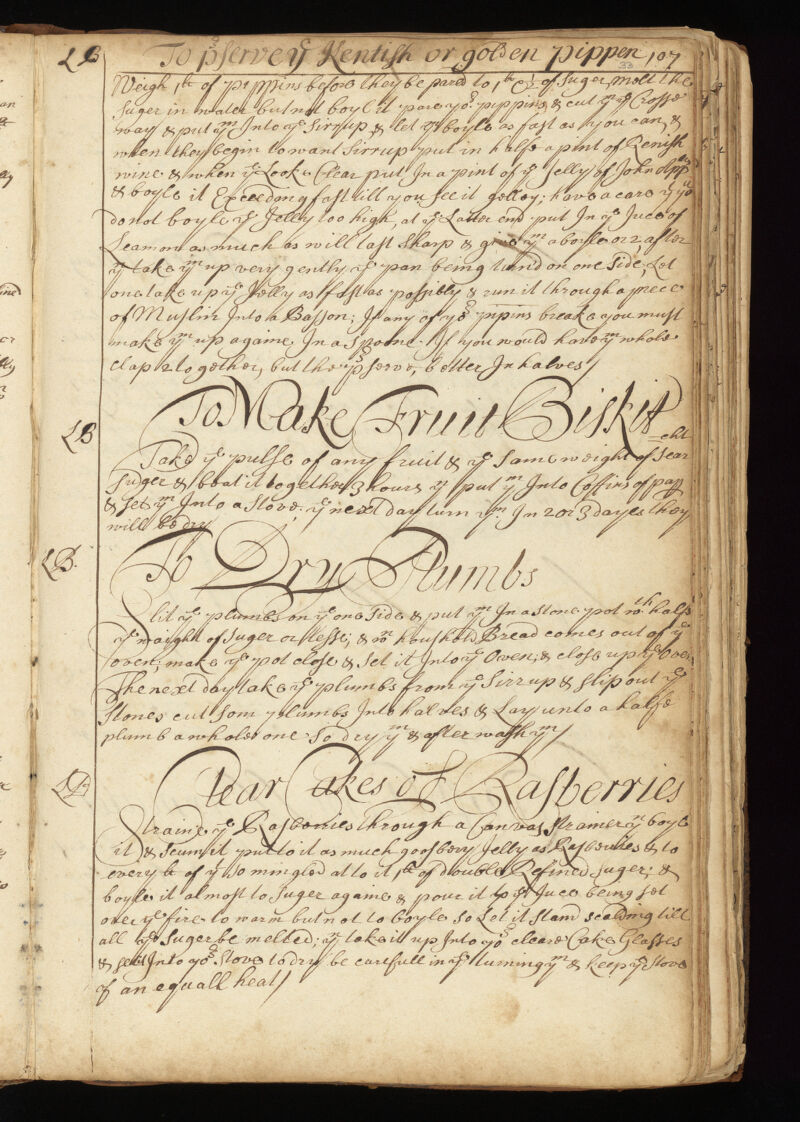 LB To pserve yͤ Kentish or golden pippen 107
33
Weigh 1ˡᵇ of pippins before they be pared to 1ˡᵇ & of suger, molt the
suger in water but not boyl it pare yoʳ pippins & cut yᵐ yᵉ Crosse
way & put yᵐ Into yᵉ Sirrup & let yᵐ boyle as fast as you can, &
when they begin to want Sirrup put in halfe a pint of Renish
wine & when yᵉ Looke Clear put In a pint of yᵉ Jelly of John Apps
& boyle it Exceeding fast till you see it gelley; have a care yᵗ yᵒ
do not boyle yᵉ Jelly too high, at yᵉ Latter end put In yᵉ Juce of
Leamon as much as will tast sharp & give yᵐ a boyle or 2, after
yᵗ take yᵐ up very gently yᵉ pan being turnd on one Side, Let
one take up yᵉ Jelly as fast as possibly & run it through a piece
of Muslin Into a Basson; If any of yoʳ pippins breake you must
make yᵐ up againe In a spoone. If you would have yᵐ whole
clap 2 together, but the pserve better In halves/
LB To Make Fruit Biskit
Take yᵉ pulpe of any fruit & yᵉ Same weight of sear
=cht
suger & beat it together 3 hours yⁿ put yᵐ Into Coffins of pap
& set yᵐ Into a stove, yᵉ next day turn yᵐ: In 2 or 3 dayes they
will be dry
LB. To Dry Plumbs
Slit yᵉ plumbs on yᵉ one Side & put yᵐ In a stone pot wᵗʰ halfe
yᵉ waight of suger or lesse; & wⁿ houshold Bread comes out of yᵉ
oven, make yᵉ pot close & set it Into yᵉ Oven; & close up yᵉ oven
The next day take yᵉ plumbs from yᵉ Sirrup & slip out yᵉ
stones cut som plumbs Into halves & Lay unto a halfe
plumb a whole one So dry yᵐ & after wash yᵐ/
LB Clear Cakes of Rasberries
Straine yᵉ Rasberries through a Canvas strainer yⁿ boyle
it, & Scum it put to it as much goosbery Jelly as Rasberries & to
every ˡᵇ of yᵉ so mingled all to it 1ˡᵇ of double Refined suger; &
boyle it almost to suger againe & pour it to yᵉ Juce being set
over yᵉ fire to warm but not to boyle so Let it stand scalding till
all yᵉ Suger be melted; yⁿ take it up Into yoʳ cleare Cake Glasses
& set Into yoʳ stove to dry be carefull in yᵉ turning yᵐ & keep yᵉ stove
of an equall heat/